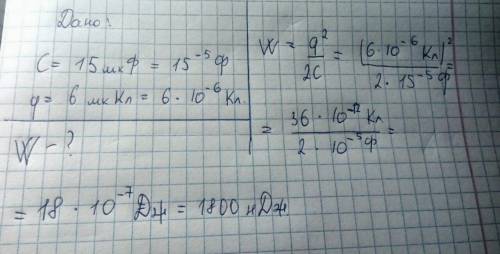 Дано:
C = 15 мкФ = 15^-5 Ф
q = 6 мкКл = 6 · 10^-6 Кл
W - ?
W = q²/2C = (6 · 10^-6 Кл)²/2 · 15^-5 Ф =
= 36 · 10^-12 Кл/2 · 10^-5 Ф =
= 18 · 10^-7 Дж = 1800 нДж